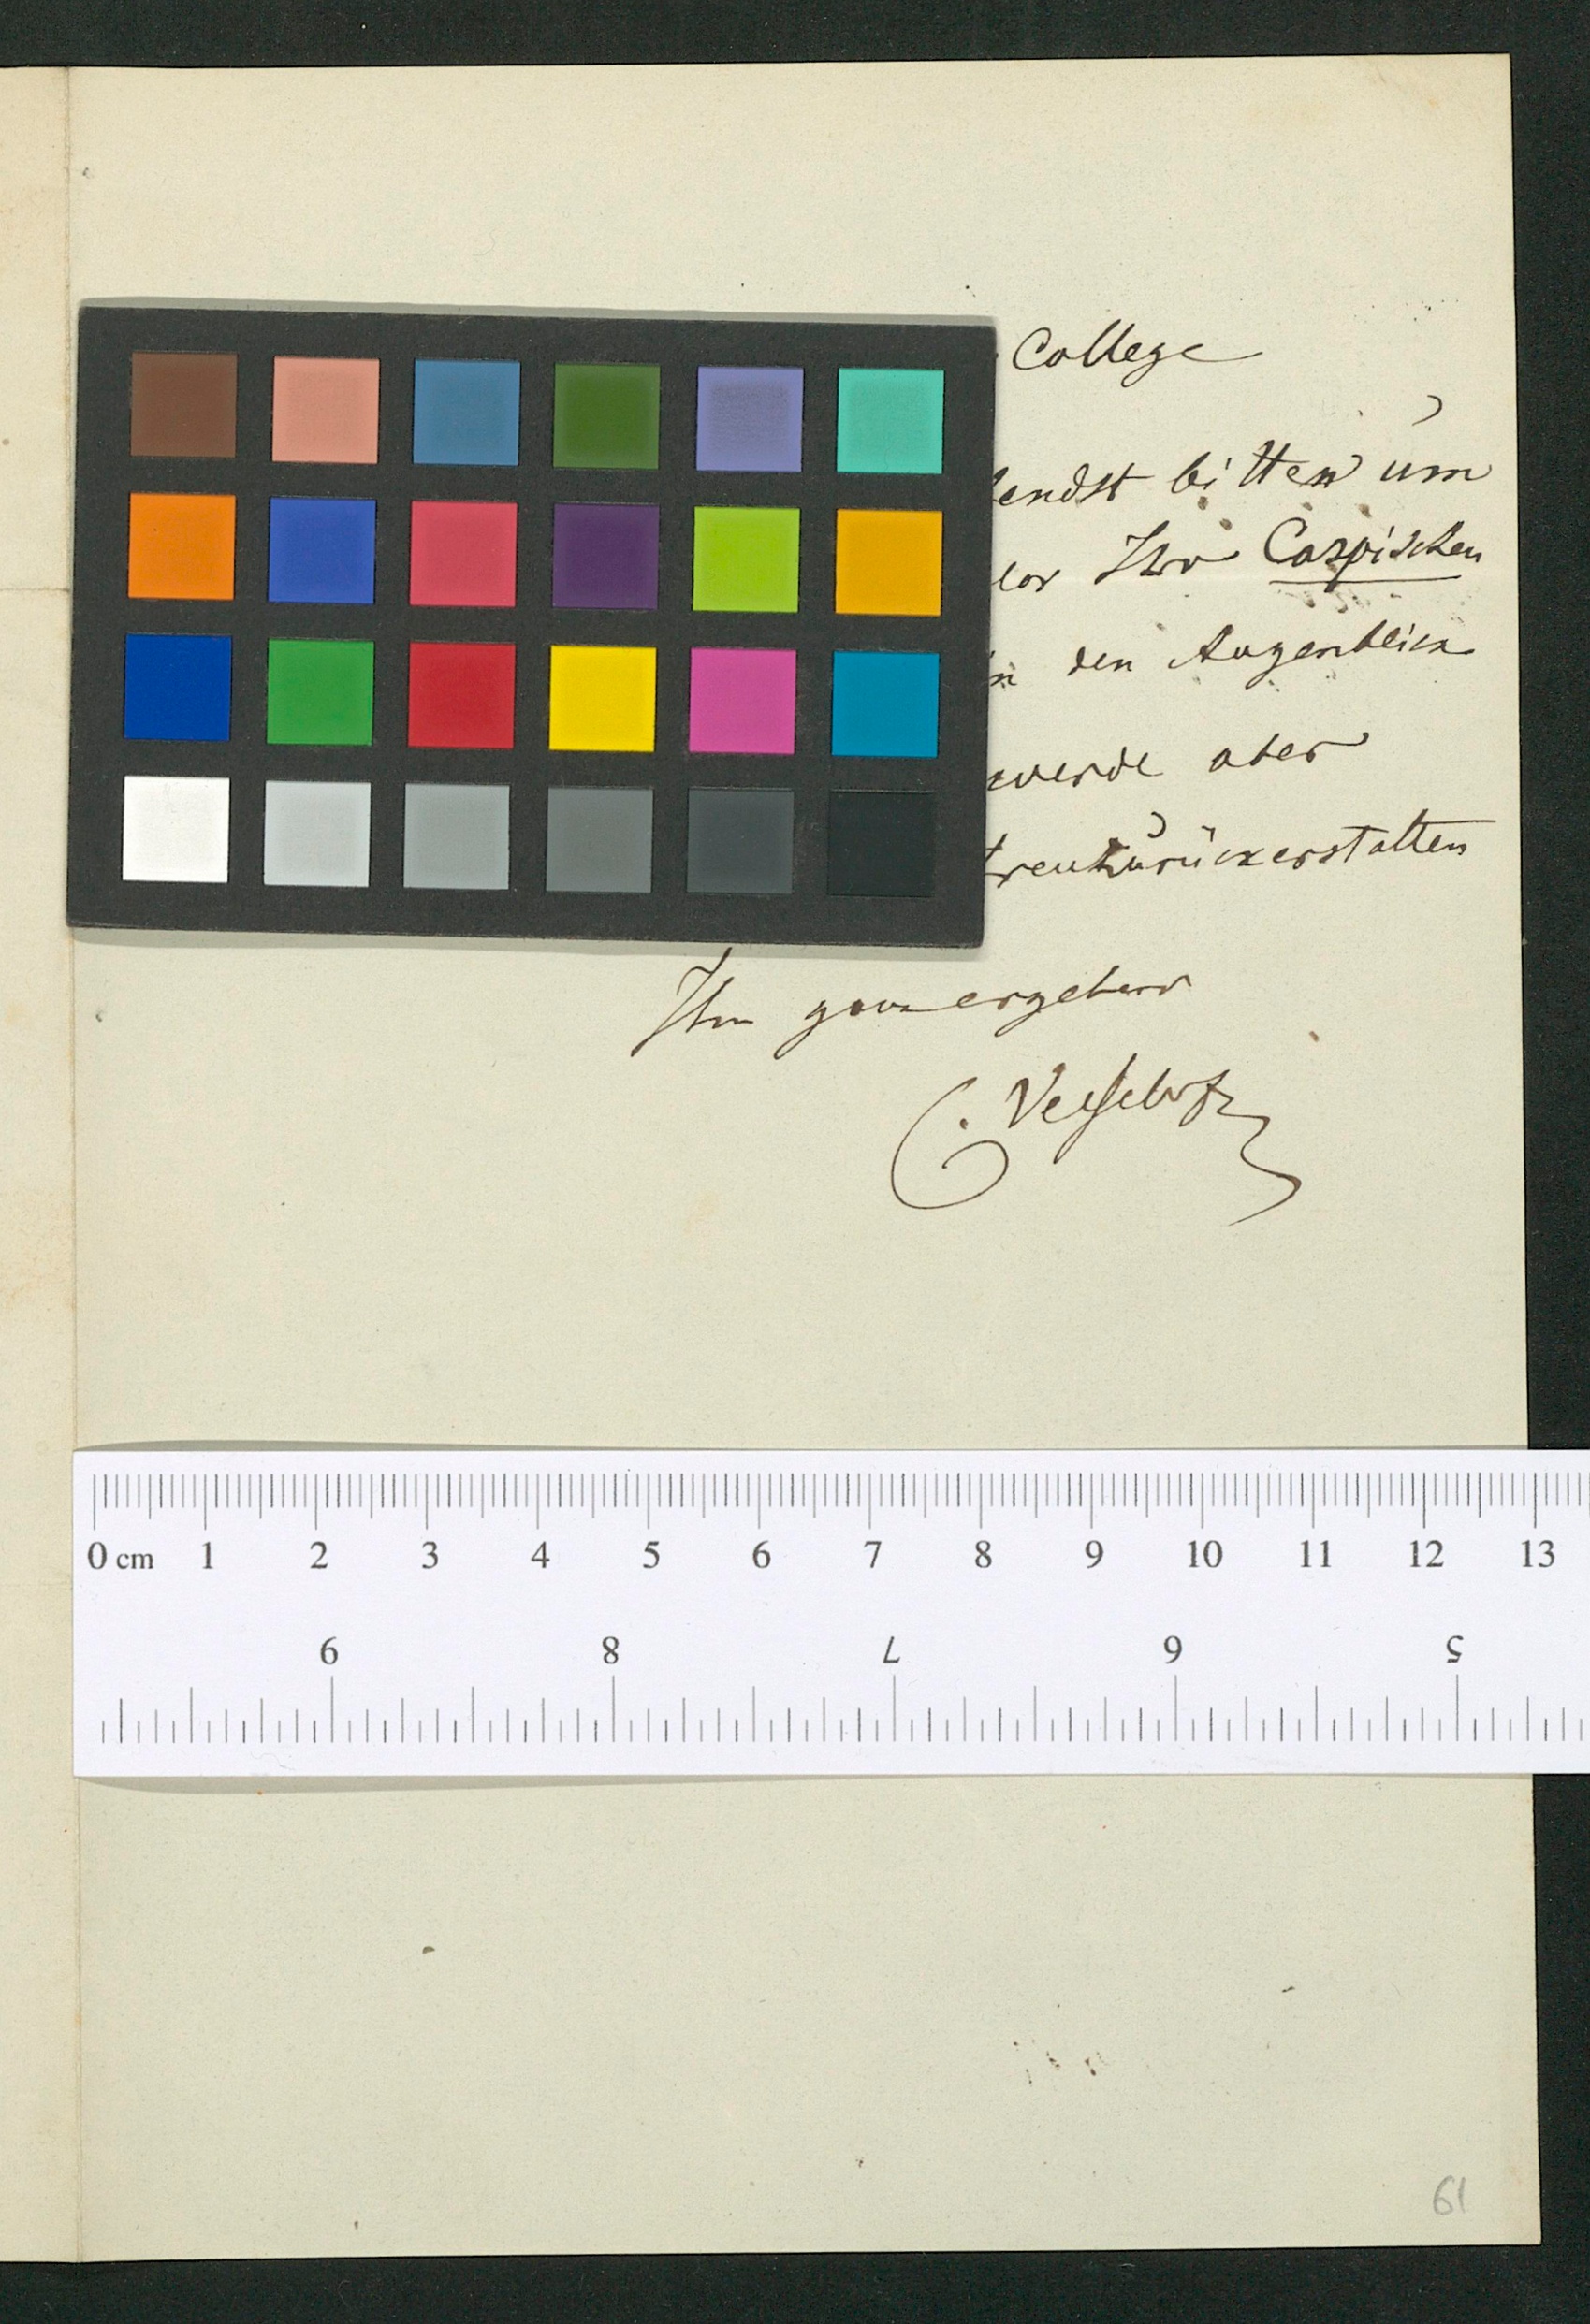 College
endst bitten um
Ihr Caspischen
den Augenblick
werde aber
treu zurückerstatten
Ihr ganz ergebener
C.
0 cm 1 2 3 4 5 6 7 8 9 10 11 12 13
9 8 7 6 5
61